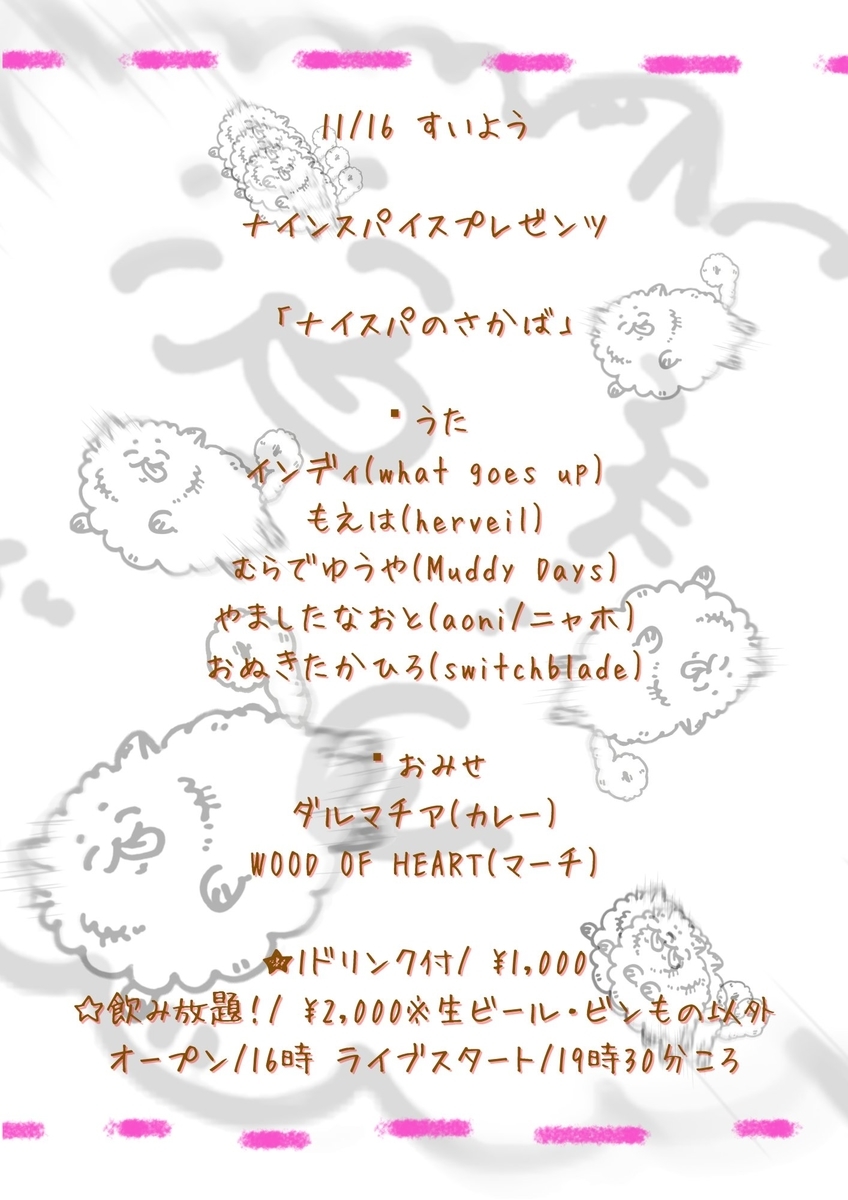 11/16 すいよう
ナインスパイスプレゼンツ
「ナイスパのさかば」
▪うた
インディ(what goes up)
もえは(herveil)
むらでゆうや(Muddy Days)
やましたなおと(aoni/ニャホ)
おぬきたかひろ(switchblade)
▪おみせ
ダルマチア(カレー)
WOOD OF HEART(マーチ)
★1ドリンク付/ ¥1,000
☆飲み放題!/ ¥2,000※生ビール・ビンもの以外
オープン/16時 ライブスタート/19時30分ころ